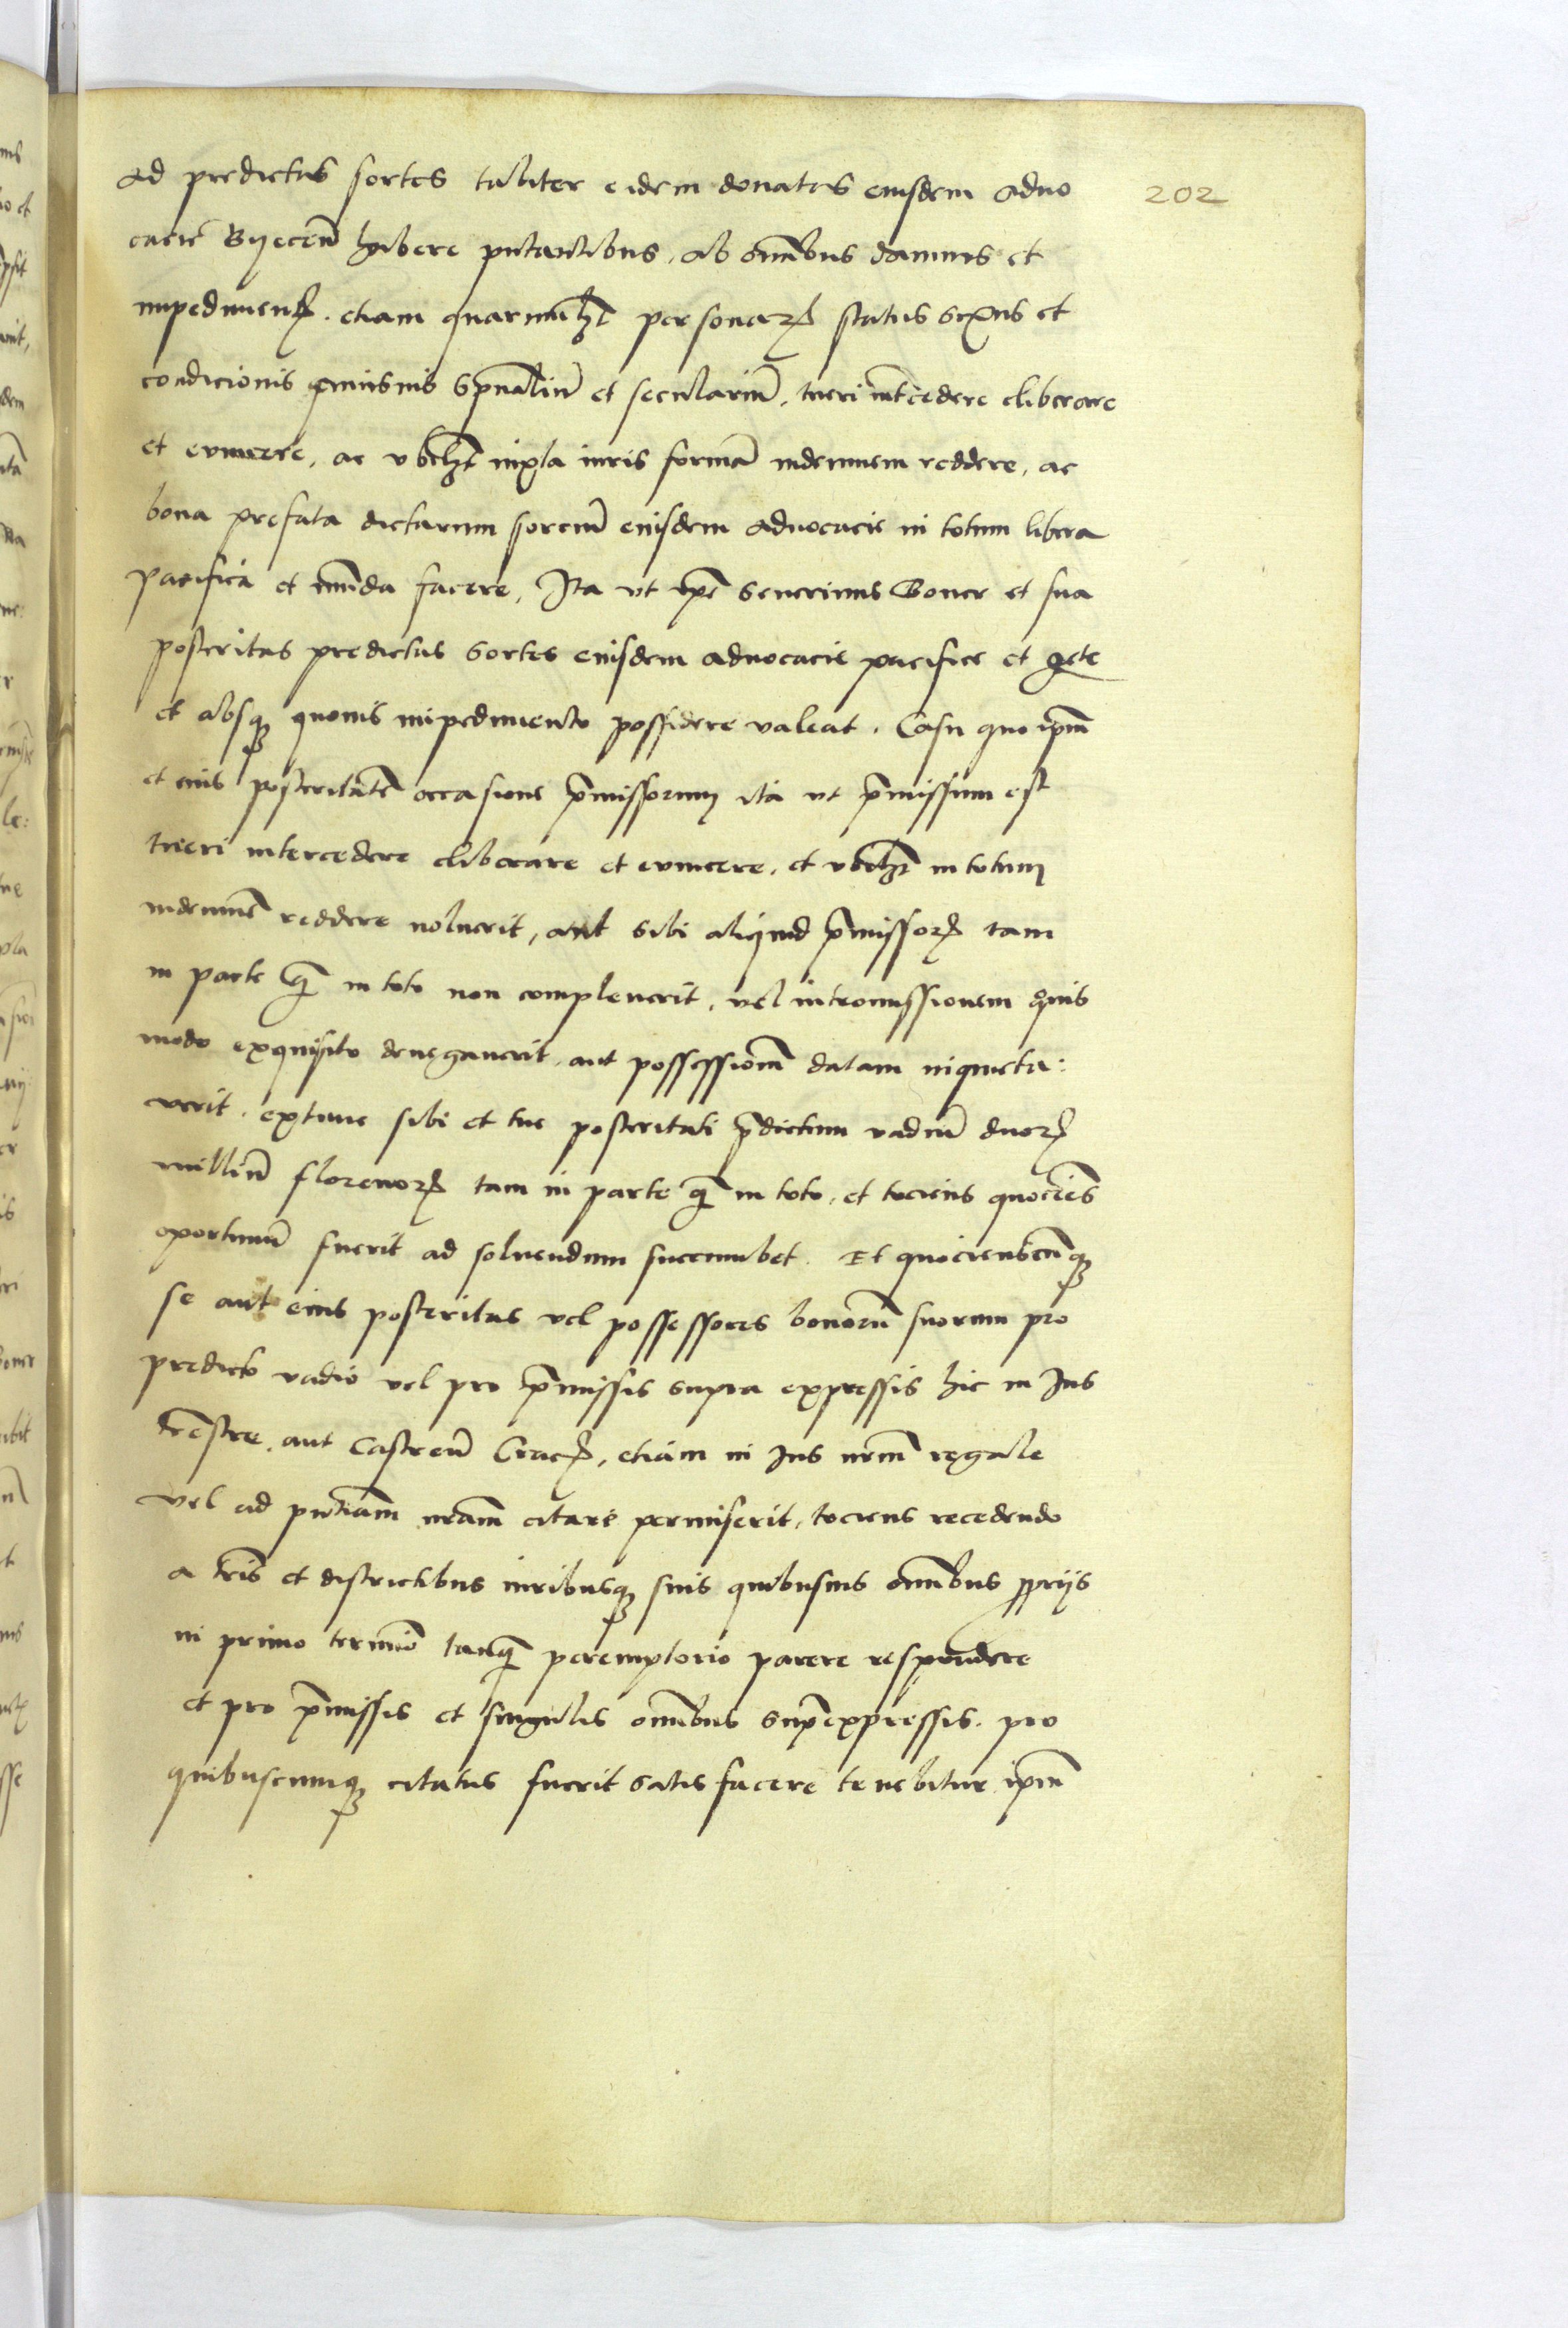 ad predictas sortes taliter eidem donatas eiusdem aduo
202
cacie Byeceñ habere putantibus, ab om̃ibus damnis et
impedimenꝝ. etiam quarumlꝫt personarꝝ status sexus et
condicionis cuiusuis Spũaliũ et seculariũ, tueri int̃cedere eliberare
et euincere, ac vbilꝫt iuxta iuris formã indemnem reddere, ac
bona prefata dictarum sorciũ eiusdem aduocacie in totum libera
pacifica et mũda facere, Ita vt ip̃e Seuerinus Boner et sua
posteritas predictas Sortes eiusdem aduocacie pacifice et q̃ete
et absqꝫ quouis impedimento possidere valeat. Casu quo ip̃m
et eius posteritatẽ occasione p̃missorum ita vt p̃missum est
tueri intercedere eliberare et euincere, et vbilꝫt in totum
indemnẽ reddere noluerit, aut sibi aliquid p̃missorꝝ tam
in parte q̃ in toto non compleuerit, vel intromissionem q̃uis
modo exquisito denegauerit, aut possessionẽ datam inquieta:
uerit. extunc sibi et sue posteritati p̃dictum vadiũ duorꝝ
milliũ florenorꝝ tam in parte q̃ in toto, et tociens quociẽs
oportunũ fuerit ad soluendum succumbet. Et quocienscũqꝫ
se aut eius posteritas vel possessores bonorũ suorum pro
predicto vadio vel pro p̃missis supra expressis hic in Ius
tr̃estre, aut Castreñ Cracꝝ, etiam in Ius nr̃m regale
vel ad pñtiam nr̃am citare permiserit, tociens recedendo
a tr̃is et districtibus iuribusqꝫ suis quibusuis om̃ibus ꝓprijs
in primo termino tanq̃ peremptorio parere respondere
et pro p̃missis et singulis om̃ibus sup̃expressis. pro
quibuscumqꝫ citatus fuerit satis facere tenebitur ip̃m